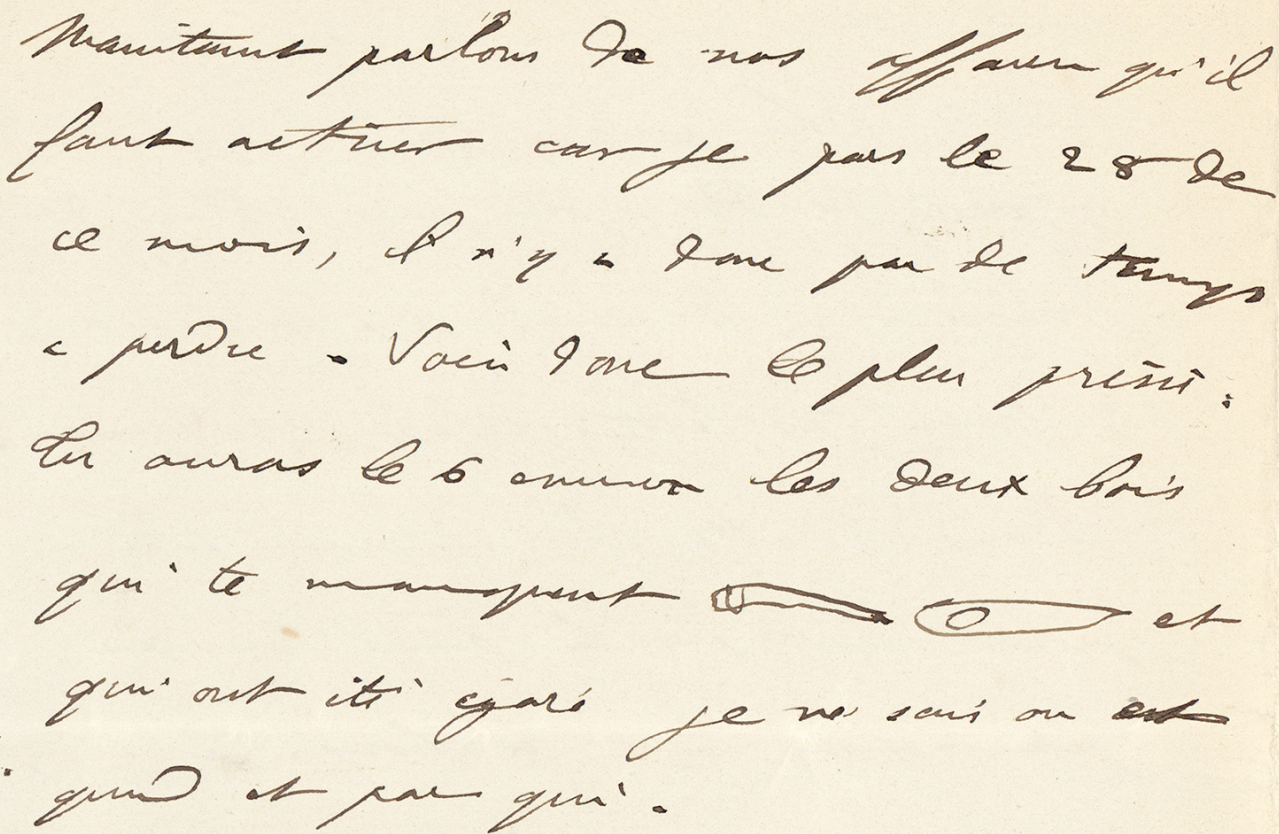 Maintenant parlons de nos affaires qu'il
faut activer car je pars le 28 de
ce mois, il n'y a donc pas de temps
a perdre - Voici donc le plus pressé :
Tu auras le 6 environ les deux bois
qui te manquent et
qui ont été égaré je ne sais ou est
quand et par qui.